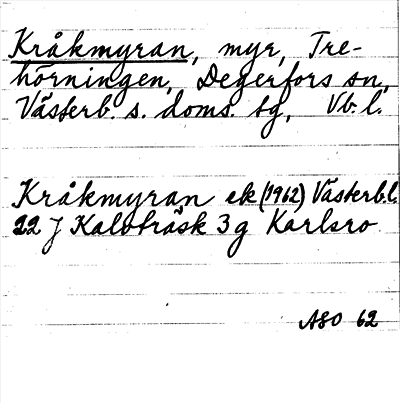 Kråkmyran, myr, Tre-
hörningen, Degerfors sn,
Västerb. s. doms. tg, Vb. l.
Kråkmyran ek (1962) Västerb.l.
22 J Kalvträsk 3 g Karlsro
ASO 62